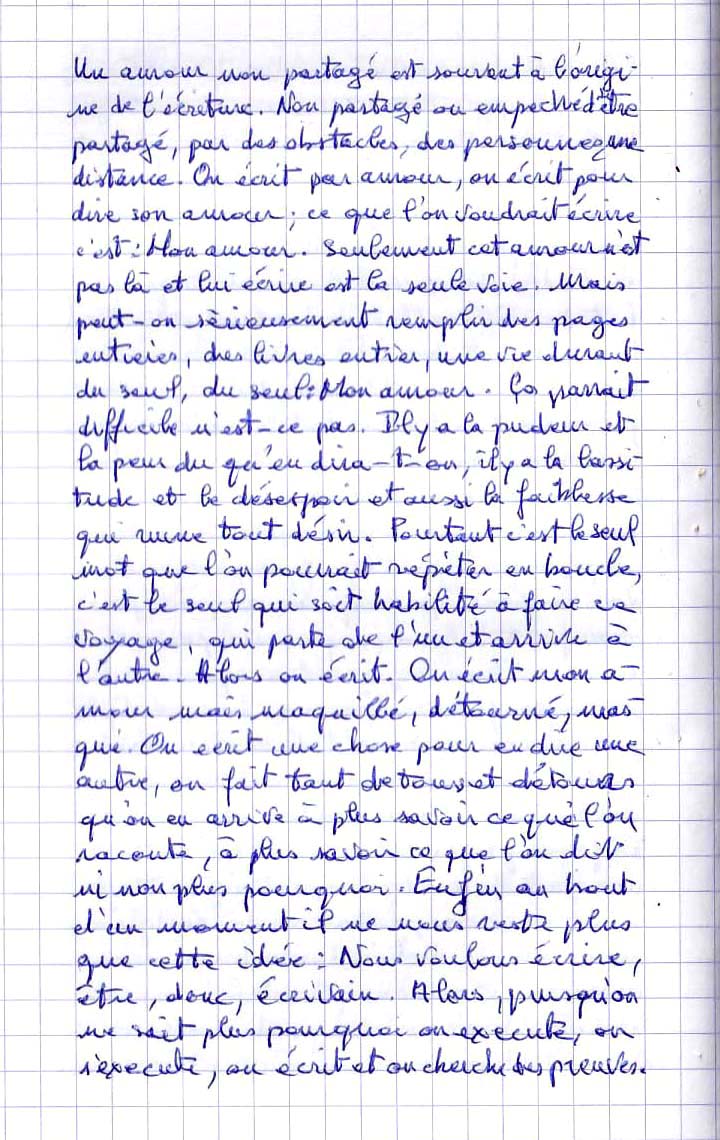 Un amour non partagé est souvent à l'origi-
ne de l'écriture. Non partagé ou empêché d'être
partagé, par des obstacles, des personnes, une
distance. On écrit par amour, on écrit pour
dire son amour ; ce que l'on voudrait écrire
c'est : Mon amour. Seulement cet amour n'est
pas là et lui écrire est la seule voie. Mais
peut-on sérieusement remplir des pages
entières, des livres entier, une vie durant
du seul, du seul : Mon amour. Ça parrait
difficile n'est-ce pas. Il y a la pudeur et
la peur du qu'en dira-t-on, il y a la lassi-
tude et le désespoir et aussi la faiblesse
qui mine tout désir. Pourtant c'est le seul
mot que l'on pourrait répéter en boucle,
c'est le seul qui soit habilité à faire ce
voyage, qui parte de l'un et arrive à
l'autre. Alors on écrit. On écrit mon a-
mour mais maquillé, détourné, mas-
qué. On ecrit une chose pour en dire une
autre, on fait tant de tours et détours
qu'on en arrive à plus savoir ce que l'on
raconte, à plus savoir ce que l'on dit
ni non plus pourquoi. Enfin au bout
d'un moment il ne nous reste plus
que cette idée : Nous voulons écrire,
être, donc, écrivain. Alors, puisqu'on
ne sait plus pourquoi on execute, on
s'execute, on écrit et on cherche des preuves.